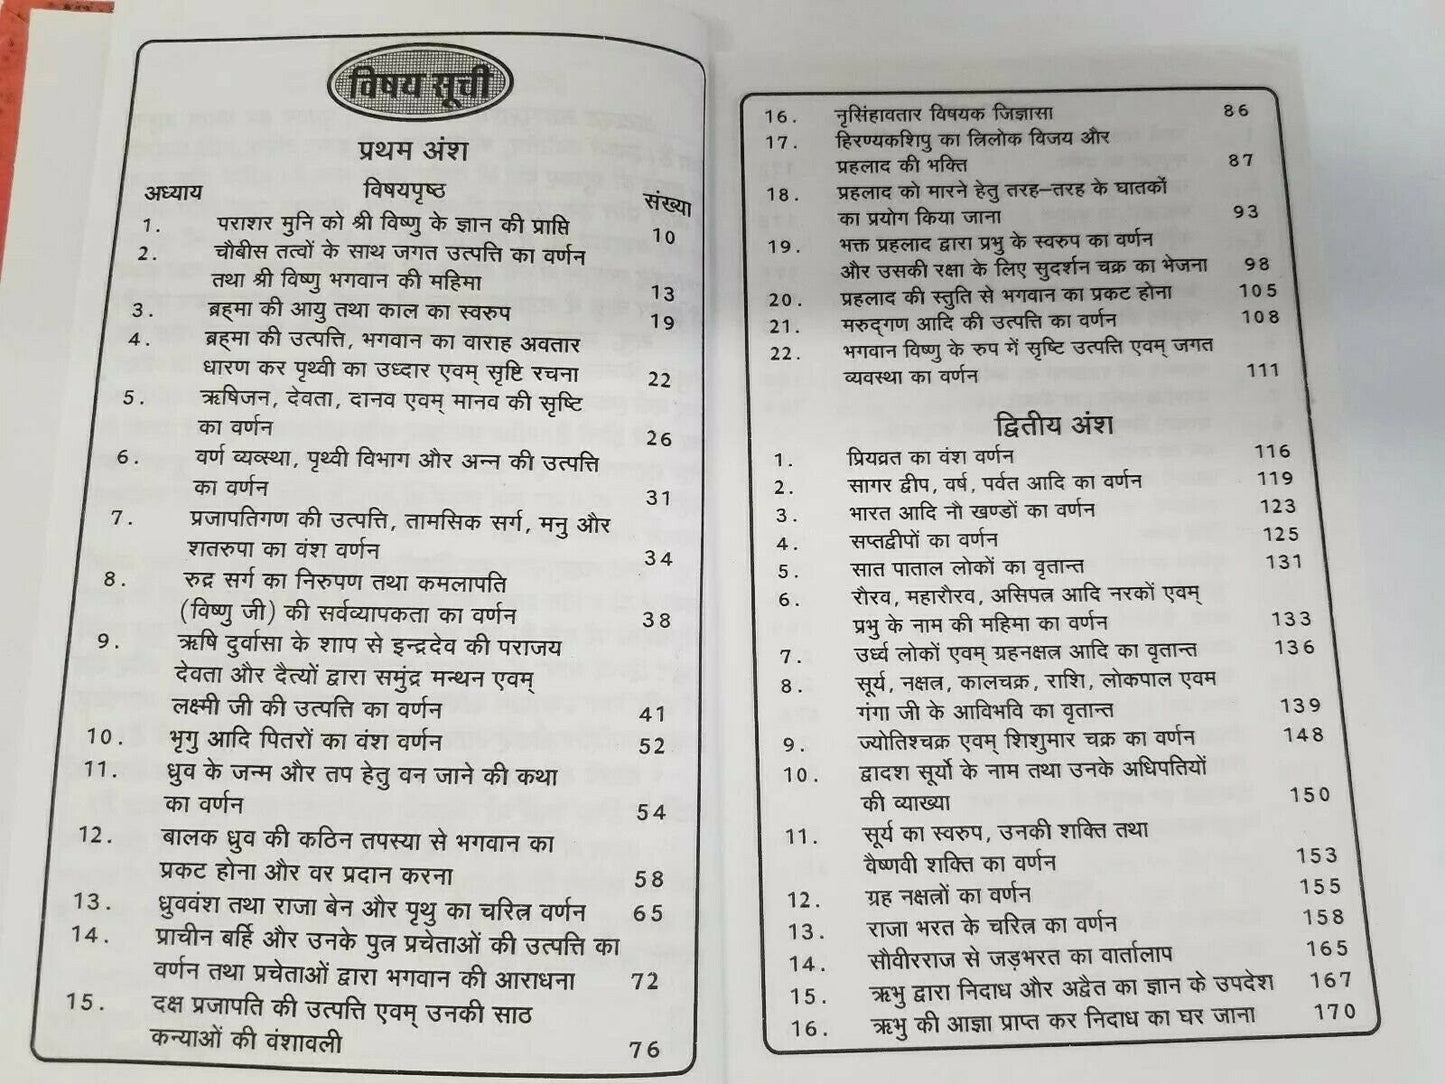 विषय सूची
प्रथम अंश
अध्याय विषयपृष्ठ संख्या
1. पराशर मुनि को श्री विष्णु के ज्ञान की प्राप्ति 10
2. चौबीस तत्वों के साथ जगत उत्पत्ति का वर्णन
तथा श्री विष्णु भगवान की महिमा 13
3. ब्रह्मा की आयु तथा काल का स्वरुप 19
4. ब्रह्मा की उत्पत्ति, भगवान का वाराह अवतार
धारण कर पृथ्वी का उध्दार एवम् सृष्टि रचना 22
5. ऋषिजन, देवता, दानव एवम् मानव की सृष्टि
का वर्णन 26
6. वर्ण व्यव्स्था, पृथ्वी विभाग और अन्न की उत्पत्ति
का वर्णन 31
7. प्रजापतिगण की उत्पत्ति, तामसिक सर्ग, मनु और
शतरुपा का वंश वर्णन 34
8. रुद्र सर्ग का निरुपण तथा कमलापति
(विष्णु जी) की सर्वव्यापकता का वर्णन 38
9. ऋषि दुर्वासा के शाप से इन्द्रदेव की पराजय
देवता और दैत्यों द्वारा समुंद्र मन्थन एवम्
लक्ष्मी जी की उत्पत्ति का वर्णन 41
10. भृगु आदि पितरों का वंश वर्णन 52
11. ध्रुव के जन्म और तप हेतु वन जाने की कथा
का वर्णन 54
12. बालक ध्रुव की कठिन तपस्या से भगवान का
प्रकट होना और वर प्रदान करना 58
13. ध्रुववंश तथा राजा बेन और पृथु का चरित्र वर्णन 65
14. प्राचीन बर्हि और उनके पुत्र प्रचेताओं की उत्पत्ति का
वर्णन तथा प्रचेताओं द्वारा भगवान की आराधना 72
15. दक्ष प्रजापति की उत्पत्ति एवम् उनकी साठ
कन्याओं की वंशावली 76
16. नृसिंहावतार विषयक जिज्ञासा 86
17. हिरण्यकशिपु का त्रिलोक विजय और
प्रहलाद की भक्ति 87
18. प्रहलाद को मारने हेतु तरह-तरह के घातकों
का प्रयोग किया जाना 93
19. भक्त प्रहलाद द्वारा प्रभु के स्वरुप का वर्णन
और उसकी रक्षा के लिए सुदर्शन चक्र का भेजना 98
20. प्रहलाद की स्तुति से भगवान का प्रकट होना 105
21. मरुद्गण आदि की उत्पत्ति का वर्णन 108
22. भगवान विष्णु के रुप में सृष्टि उत्पत्ति एवम् जगत
व्यवस्था का वर्णन 111
द्वितीय अंश
1. प्रियव्रत का वंश वर्णन 116
2. सागर द्वीप, वर्ष, पर्वत आदि का वर्णन 119
3. भारत आदि नौ खण्डों का वर्णन 123
4. सप्तद्वीपों का वर्णन 125
5. सात पाताल लोकों का वृतान्त 131
6. रौरव, महारौरव, असिपत्र आदि नरकों एवम्
प्रभु के नाम की महिमा का वर्णन 133
7. उर्ध्व लोकों एवम् ग्रहनक्षत्र आदि का वृतान्त 136
8. सूर्य, नक्षत्र, कालचक्र, राशि, लोकपाल एवम
गंगा जी के आविभवि का वृतान्त 139
9. ज्योतिश्चक्र एवम् शिशुमार चक्र का वर्णन 148
10. द्वादश सूर्यो के नाम तथा उनके अधिपतियों
की व्याख्या 150
11. सूर्य का स्वरुप, उनकी शक्ति तथा
वैष्णवी शक्ति का वर्णन 153
12. ग्रह नक्षत्रों का वर्णन 155
13. राजा भरत के चरित्र का वर्णन 158
14. सौवीरराज से जड़भरत का वार्तालाप 165
15. ऋभु द्वारा निदाध और अद्वैत का ज्ञान के उपदेश 167
16. ऋभु की आज्ञा प्राप्त कर निदाध का घर जाना 170